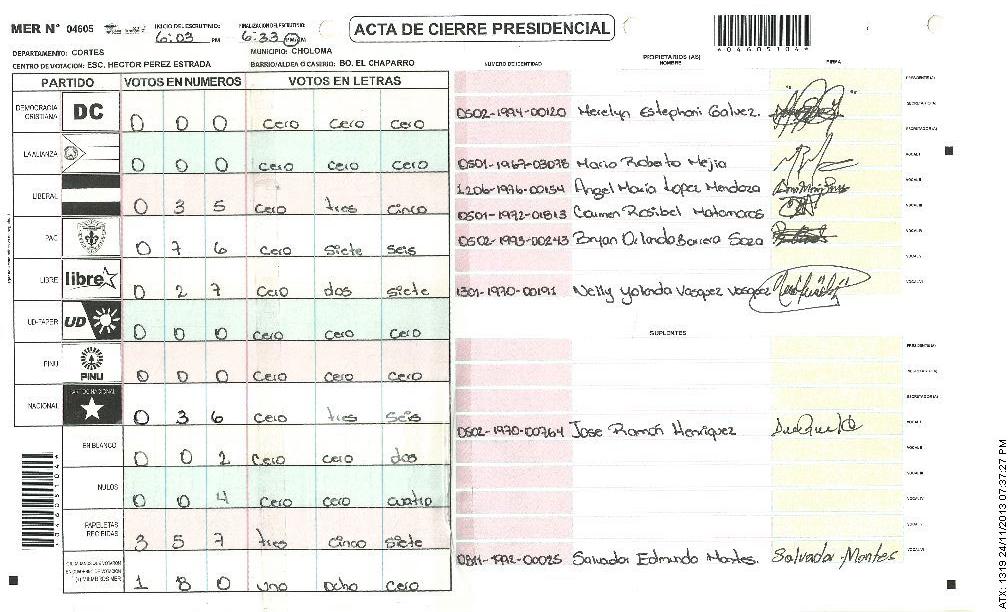 MER Nº 04605
INICIO DEL ESCRUTINIO: 6:03 PM
FINALIZACION DEL ESCRUTINIO: 6:33
ACTA DE CIERRE PRESIDENCIAL
*04605104*
DEPARTAMENTO: CORTES
MUNICIPIO: CHOLOMA
CENTRO DE VOTACION: ESC. HECTOR PEREZ ESTRADA
BARRIO/ALDEA O CASERIO: BO. EL CHAPARRO
PARTIDO VOTOS EN NUMEROS VOTOS EN LETRAS
DEMOCRACIA CRISTIANA DC 0 0 0 cero cero cero
LA ALIANZA 0 0 0 cero cero cero
LIBERAL 0 3 5 cero tres cinco
PAC 0 7 6 cero siete seis
LIBRE libre 0 2 7 cero dos siete
UD-FAPER UD 0 0 0 cero cero cero
PINU PINU 0 0 0 cero cero cero
NACIONAL PARTIDO NACIONAL 0 3 6 cero tres seis
EN BLANCO 0 0 2 cero cero dos
NULOS 0 0 4 cero cero cuatro
PAPELETAS RECIBIDAS 3 5 7 tres cinco siete
1 8 0 uno ocho cero
NUMERO DE IDENTIDAD
PROPIETARIOS (AS)
NOMBRE
FIRMA
PRESIDENTE(A)
0502-1994-00120 Merelyn Estephani Galvez. SECRETARIO(A)
0501-1967-03078 Mario Roberto Mejia VOCAL I
1206-1976-00154 Angel Maria Lopez Mendoza VOCAL II
0501-1972-01813 Carmen Rosibel Matamoros VOCAL III
0502-1993-00243 Bryan Orlando Barrera Soza VOCAL IV
VOCAL V
1301-1970-00191 Nelly Yolanda Vasquez Vasquez VOCAL VI
SUPLENTES
PRESIDENTE(A)
SECRETARIO(A)
0502-1970-00764 Jose Ramón Henriquez VOCAL I
VOCAL II
VOCAL III
VOCAL IV
VOCAL V
0811-1992-00025 Salvador Edmundo Montes. Salvador Montes VOCAL VI
ATX: 1319 24/11/2013 07:37:27 PM